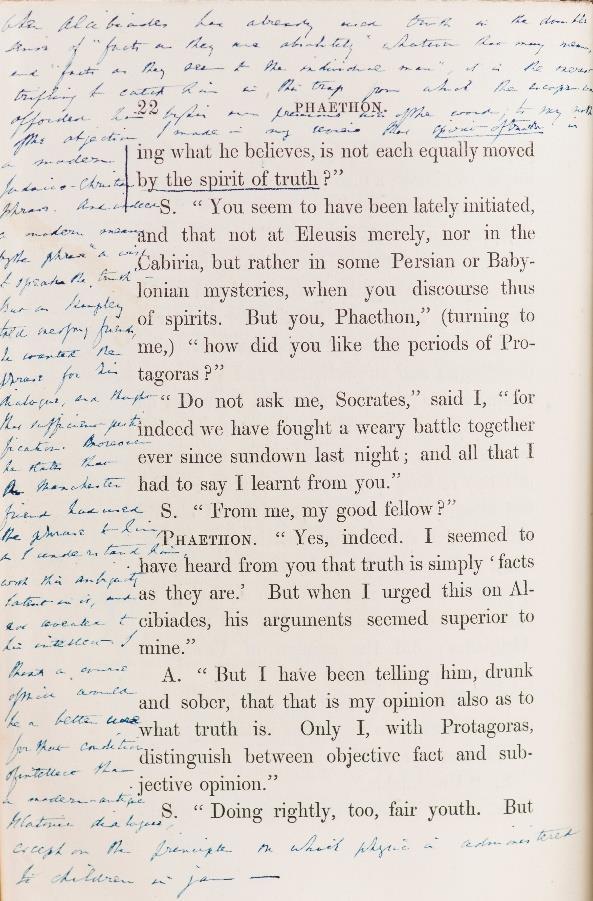 When Alcibiades has already used truth in the double
sense of "facts as they are absolutely" whatever that may mean,
and "facts as they seem to the individual man", it is the merest
trifling to catch him in the trap from which the escape was
afforded him by his own previous use of the word, to my
of the objection I made in my review that spirit of truth is
a modern
Judaico-Christian
phrase. And indeed
a modern
by the phrase "a
to speak the truth
But as Kingsley
told me of my friend,
he wanted the
phrase for his
dialogue, and thought
this sufficient justi-
fication. Moreover
he states that
a Manchester
friend had used
the phrase to him,
as I understand him,
with this ambiguity
latent in it, and
his intellect I
think a course
would
be a better
for that condition
of intellect than
a modern-antique
Platonic dialogue,
except on the principle on which physic is administered
to children in jam —
22 PHAETHON.
ing what he believes, is not each equally moved
by the spirit of truth?"
S. "You seem to have been lately initiated,
and that not at Eleusis merely, nor in the
Cabiria, but rather in some Persian or Baby-
lonian mysteries, when you discourse thus
of spirits. But you, Phaethon," (turning to
me,) "how did you like the periods of Pro-
tagoras?"
"Do not ask me, Socrates," said I, "for
indeed we have fought a weary battle together
ever since sundown last night; and all that I
had to say I learnt from you."
S. "From me, my good fellow?"
PHAETHON. "Yes, indeed. I seemed to
have heard from you that truth is simply 'facts
as they are.' But when I urged this on Al-
cibiades, his arguments seemed superior to
mine."
A. "But I have been telling him, drunk
and sober, that that is my opinion also as to
what truth is. Only I, with Protagoras,
distinguish between objective fact and sub-
jective opinion."
S. "Doing rightly, too, fair youth. But